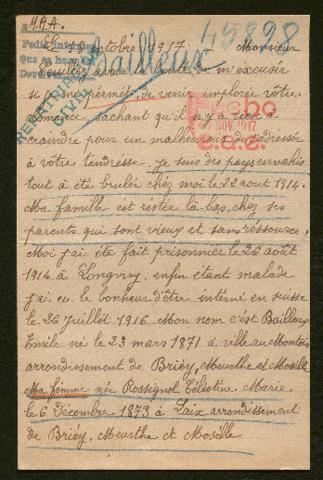 H.A.A.
45898
Le 18 octobre 1917 Monsieur
Bailleux
Veuillez avoir la bonté de m'excuser
si je me permet de venir implorer votre
clémence sachant qu'il n'y a rien à
craindre pour un malheureux de s'adressé
à votre tendresse. je suis des pays envahis
tout à été brulée chez moi le 22 aout 1914.
Ma famille est restée là-bas chez ses
parents qui sont vieux et sans ressource,
Moi j'ai été fait prisonnier le 26 août
1914 à Longwy, enfin étant malade
j'ai eu le bonheur d'être interné en suisse
le 26 Juillet 1916 Mon nom c'est Bailleux
Emile né le 23 mars 1871 à ville au Montois
arrondissement de Briéy, Meurthe et Moselle
Ma femme née Rossignol Célestine Marie
le 6 Décembre 1873 à Laix arrondissement
de Briéy, Meurthe et Moselle
REGISTRO
CIVIL
NOV. 1917